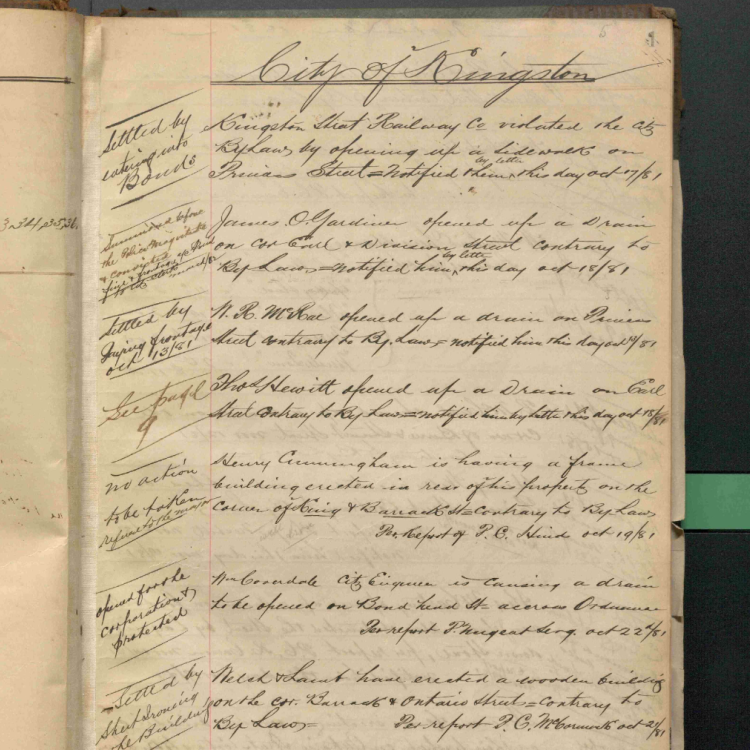 5 9
City of Kingston
Settled by
entering into
Bonds
Kingston Street Railway Co violated the city
By Laws by opening up a sidewalk on
by letter
Princess Street = Notified them this day oct 17/81
Summoned before
the Police Magistrate
& convicted
James O. Gardiner opened up a Drain
on cor Earl & Division Street contrary to
by letter
By Laws = notified him this day oct 18/81
Settled by
paying frontage
oct 13/81
W. R. McRae opened up a drain on Princess
Street contrary to By. Law = notified him this day oct /81
See page
9
Thos Hewitt opened up a Drain on Earl
Street contrary to By Law = notified him by letter this day oct 18/81
no action
to be taken
refered to the mayor
Henry Cunningham is having a frame
building erected in rear of his property on the
corner of King & Barrack St = contrary to By Laws
Per Report of P. C. Hind oct 19/81
opened for the
corporation &
protected
Wm Coverdale City Engineer is causing a drain
to be opened on Bond head St = accross Ordnance
Per report P. Nugent Serg. oct 22d/81
Settled by
Sheet Ironing
the Building
Welch & Saint have erected a wooden building
on the cor. Barrack & Ontario Streets = contrary to
By Laws = Per report P. C. McCormick oct 21/81